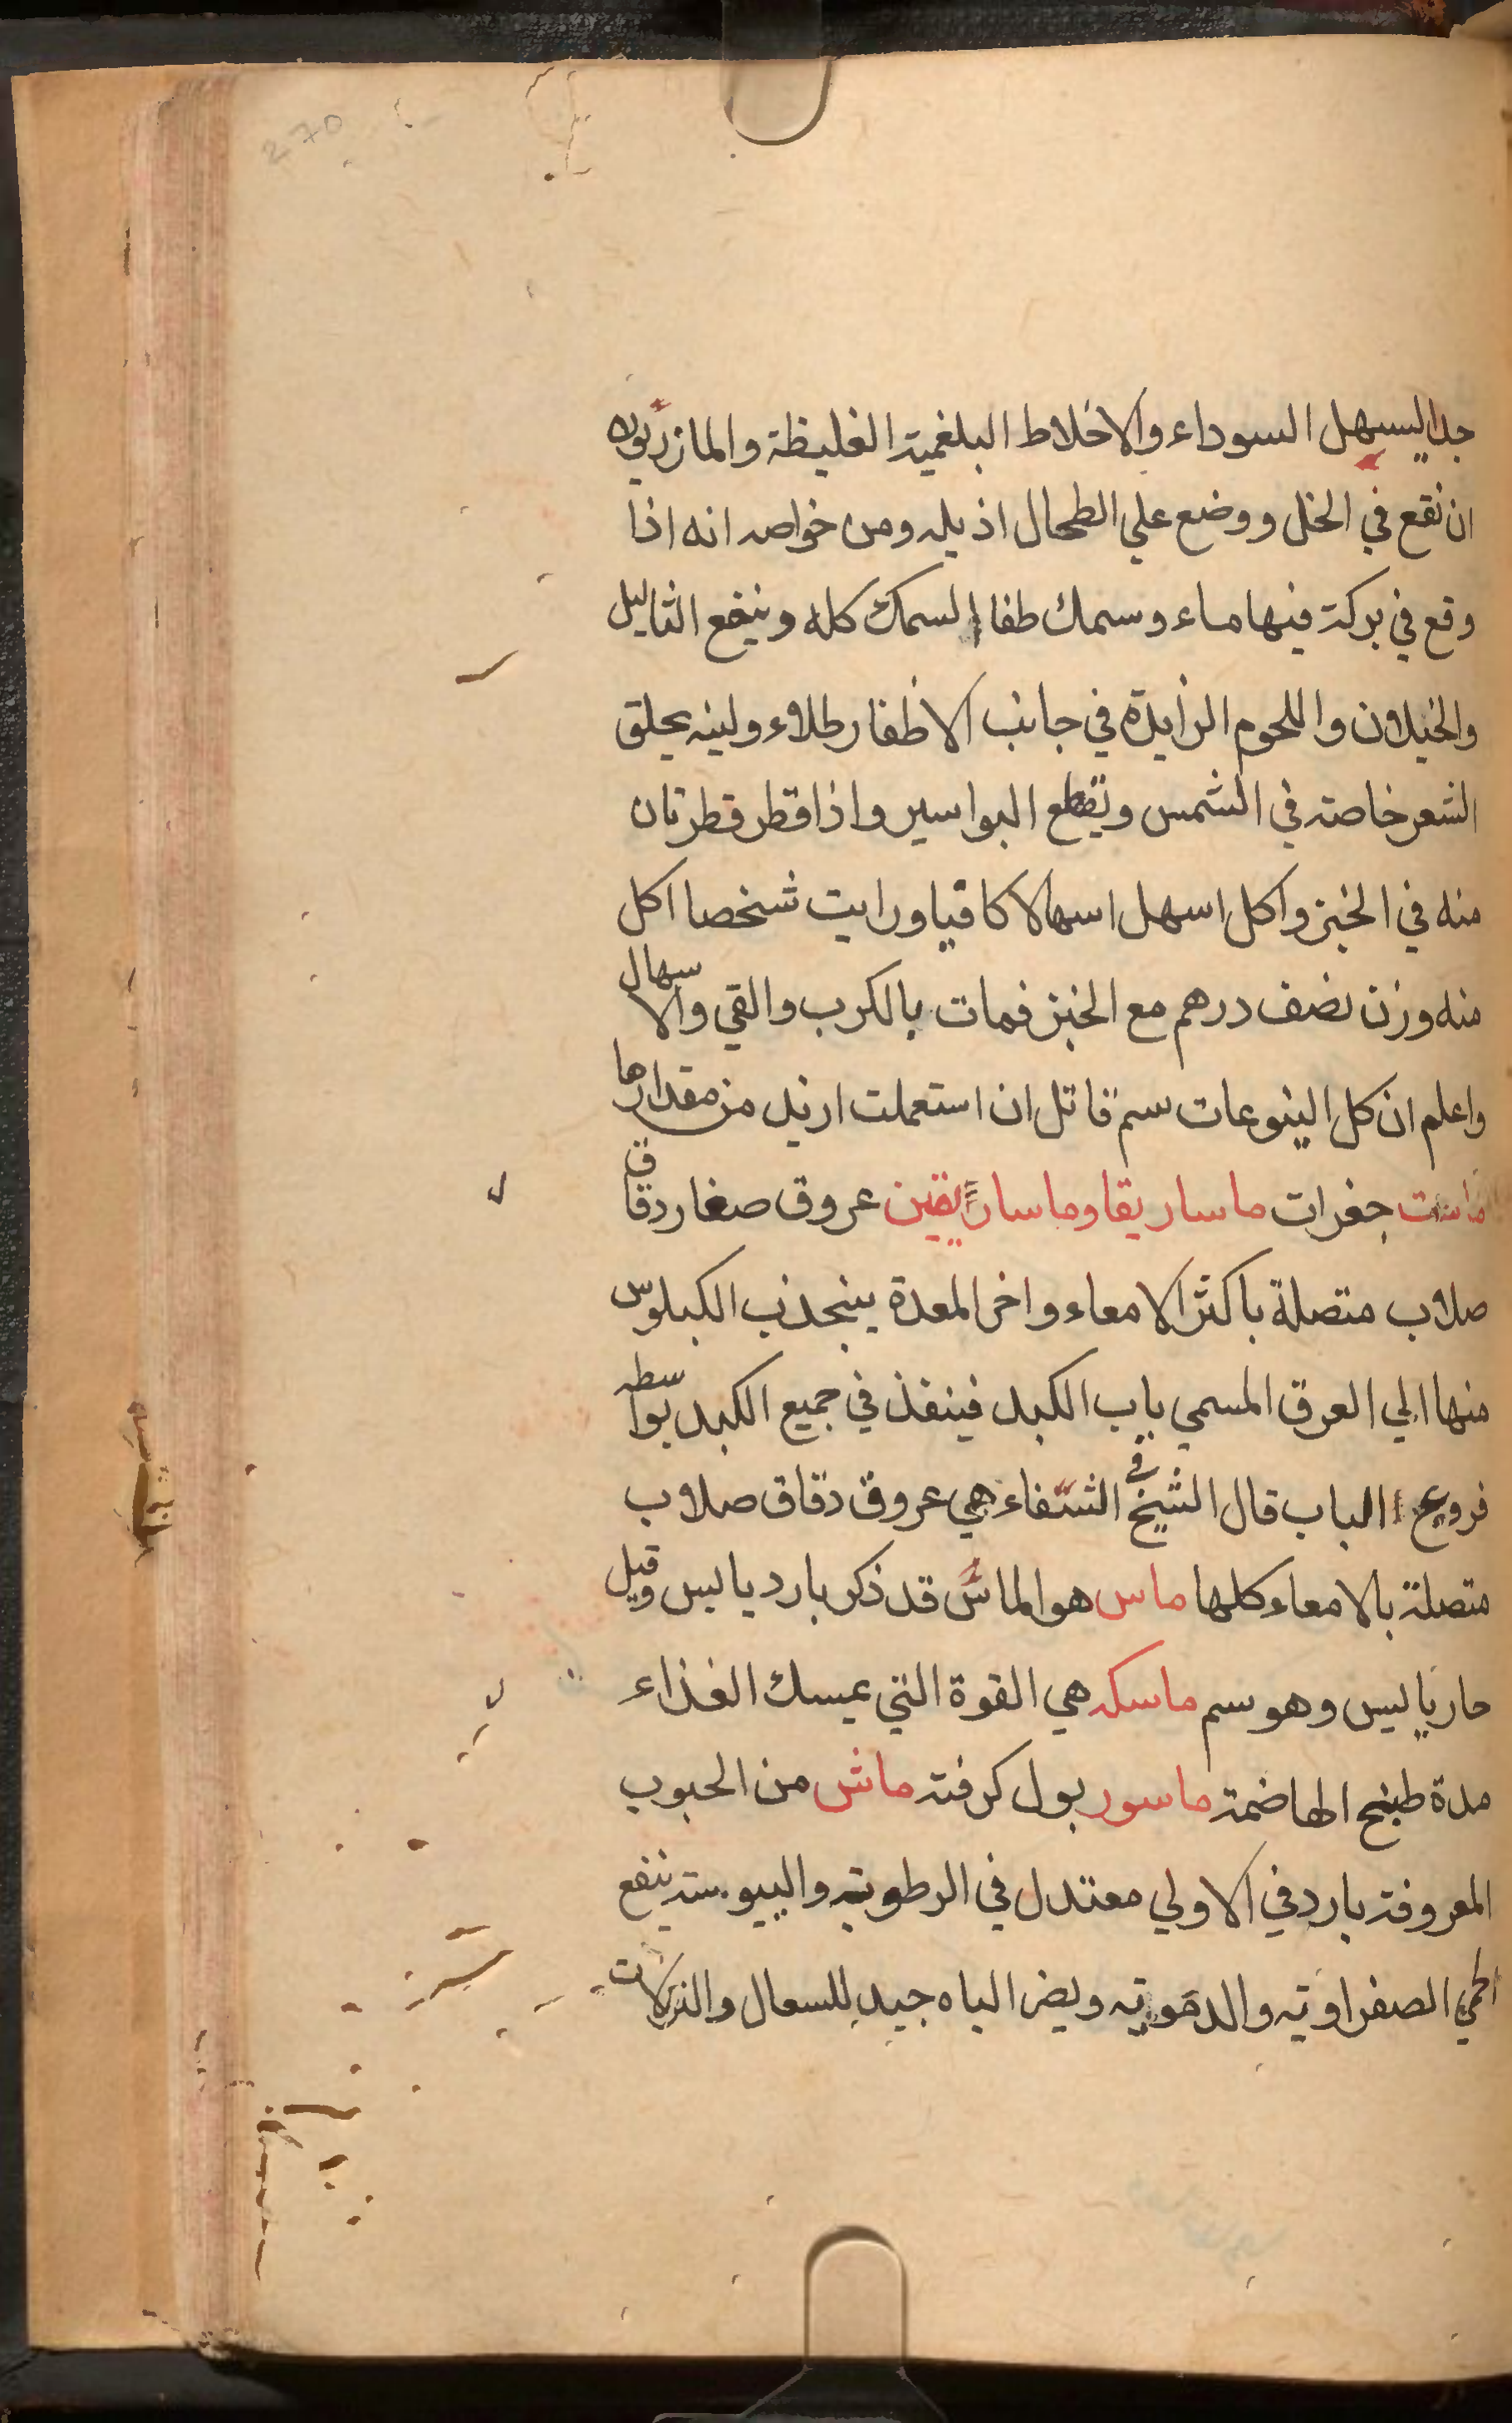 270
جدا يسهل السوداء والاخلاط البلغمية الغليظة والمازريون
ان نقع في الخل ووضع علي الطحال اذبله ومن خواصه انه اذا
وقع في بركة فيها ماء وسمك طفا السمك كله وينفع الثاليل
والخيلان واللحوم الزايدة في جانب الاظفار طلاء ولبنه يحلق
الشعر خاصة في الشمس ويقطع البواسير واذا قطر قطرتان
منه في الخبز واكل اسهل اسهالا كافيا ورايت شخصا اكل
منه وزن نصف درهم مع الخبز فمات بالكرب والقي والاسهال
واعلم ان كل اليتوعات سم قاتل ان استعملت ازيد من مقدارها
ماست جغرات ماساريقا وماساريقين عروق صغار دقاق
صلاب متصلة باكثر الامعاء واخر المعدة ينجذب الكيلوس
منها الي العرق المسمي باب الكبد فينفذ في جميع الكبد بواسطه
فروع الباب قال الشيخ في الشفاء هي عروق دقاق صلاب
متصلة بالامعاء كلها ماس هو الماس قد ذكر بارد يابس وقيل
حار يابس وهو سم ماسكه هي القوة التي يمسك الغذاء
مدة طبخ الهاضمة ماسور بول كرفته ماش من الحبوب
المعروفة بارد في الاولي معتدل في الرطوبة واليبوسته ينفع
الحمي الصفراويه والدمويه ويضر الباه جيد للسعال والنزلات